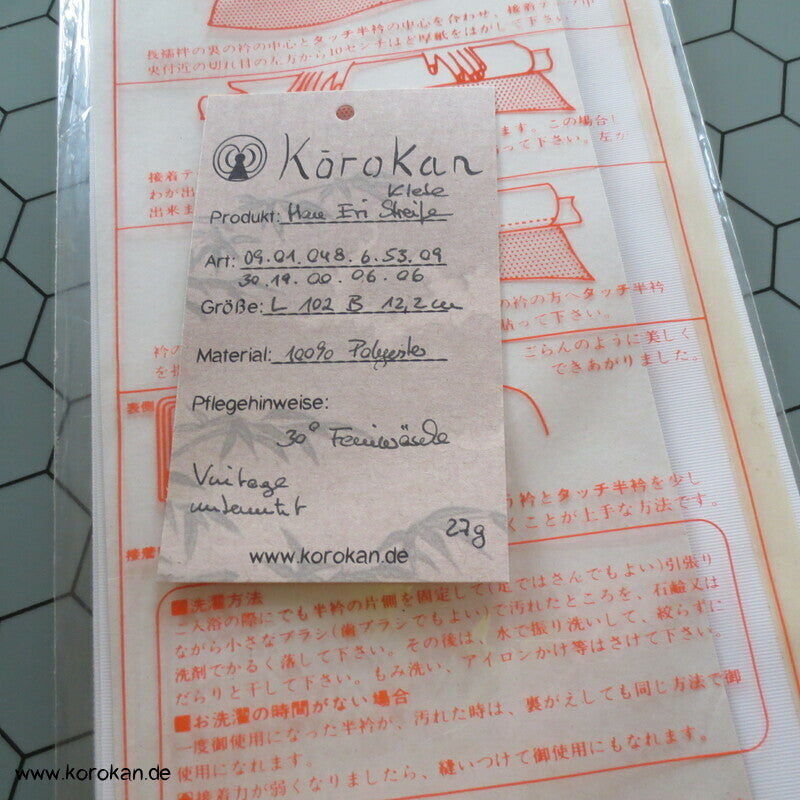 長襦袢の裏の衿の中心とタッチ半衿の中心を合わせ、接着テープ中
央付近の切れ目の左方から10センチほど厚紙をはがして下さい。
ます。この場合し
って下さい。左か
接着テ
わか出
出来ま
Kōrokan
Klebe
Produkt: Han Eri Streife
Art: 09.01.048.6.53.09
30.19.00.06.06
Größe: L 102 B 12,2cm
の衿の方へタッチ半衿
貼って下さい。
Material: 100% Polyester
衿の
を折
ごらんのように美しく
できあがりました。
Pflegehinweise:
表側
30° Feinwäsche
Vintage
unbenutzt
27g
う衿とタッチ半衿を少し
くことが上手な方法です。
www.korokan.de
接着
■洗濯方法
ご入浴の際にでも半衿の片側を固定して(足ではさんでもよい)引張り
ながら小さなブラシ(歯ブラシでもよい)で汚れたところを、石鹼又は
洗剤でかるく落して下さい。その後は、水で振り洗いして、絞らずに
だらりと干して下さい。もみ洗い、アイロンかけ等はさけて下さい。
■お洗濯の時間がない場合
一度御使用になった半衿が、汚れた時は、裏がえしても同じ方法で御
使用になれます。
接着力が弱くなりましたら、縫いつけて御使用にもなれます。
www.korokan.de